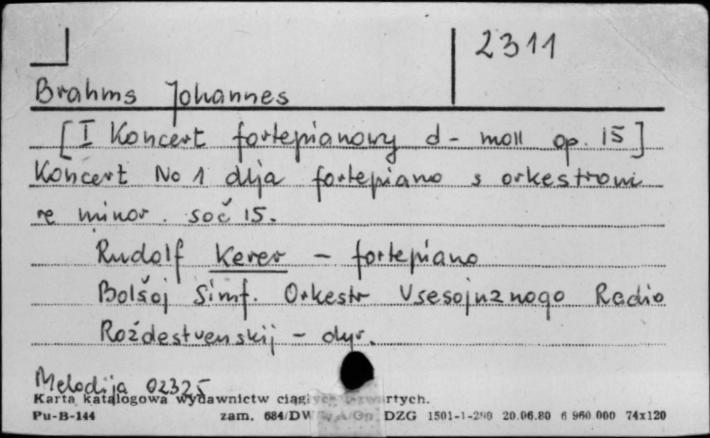 2311
Brahms Johannes
[I Koncert fortepianowy d-moll op. 15]
Koncert No 1 dlja fortepiano s orkestrom
re minor. soč 15.
Rudolf Kerer – fortepiano
Bolšoj Simf. Orkestr Vsesojuznogo Radio
Roždestvenskij – dyr.
Melodija 02325
Karta katalogowa wydawnictw ciągłych i zwartych.
Pu-B-144 zam. 684/DW DZG 1501-1-290 20.06.80 6 960 000 74x120